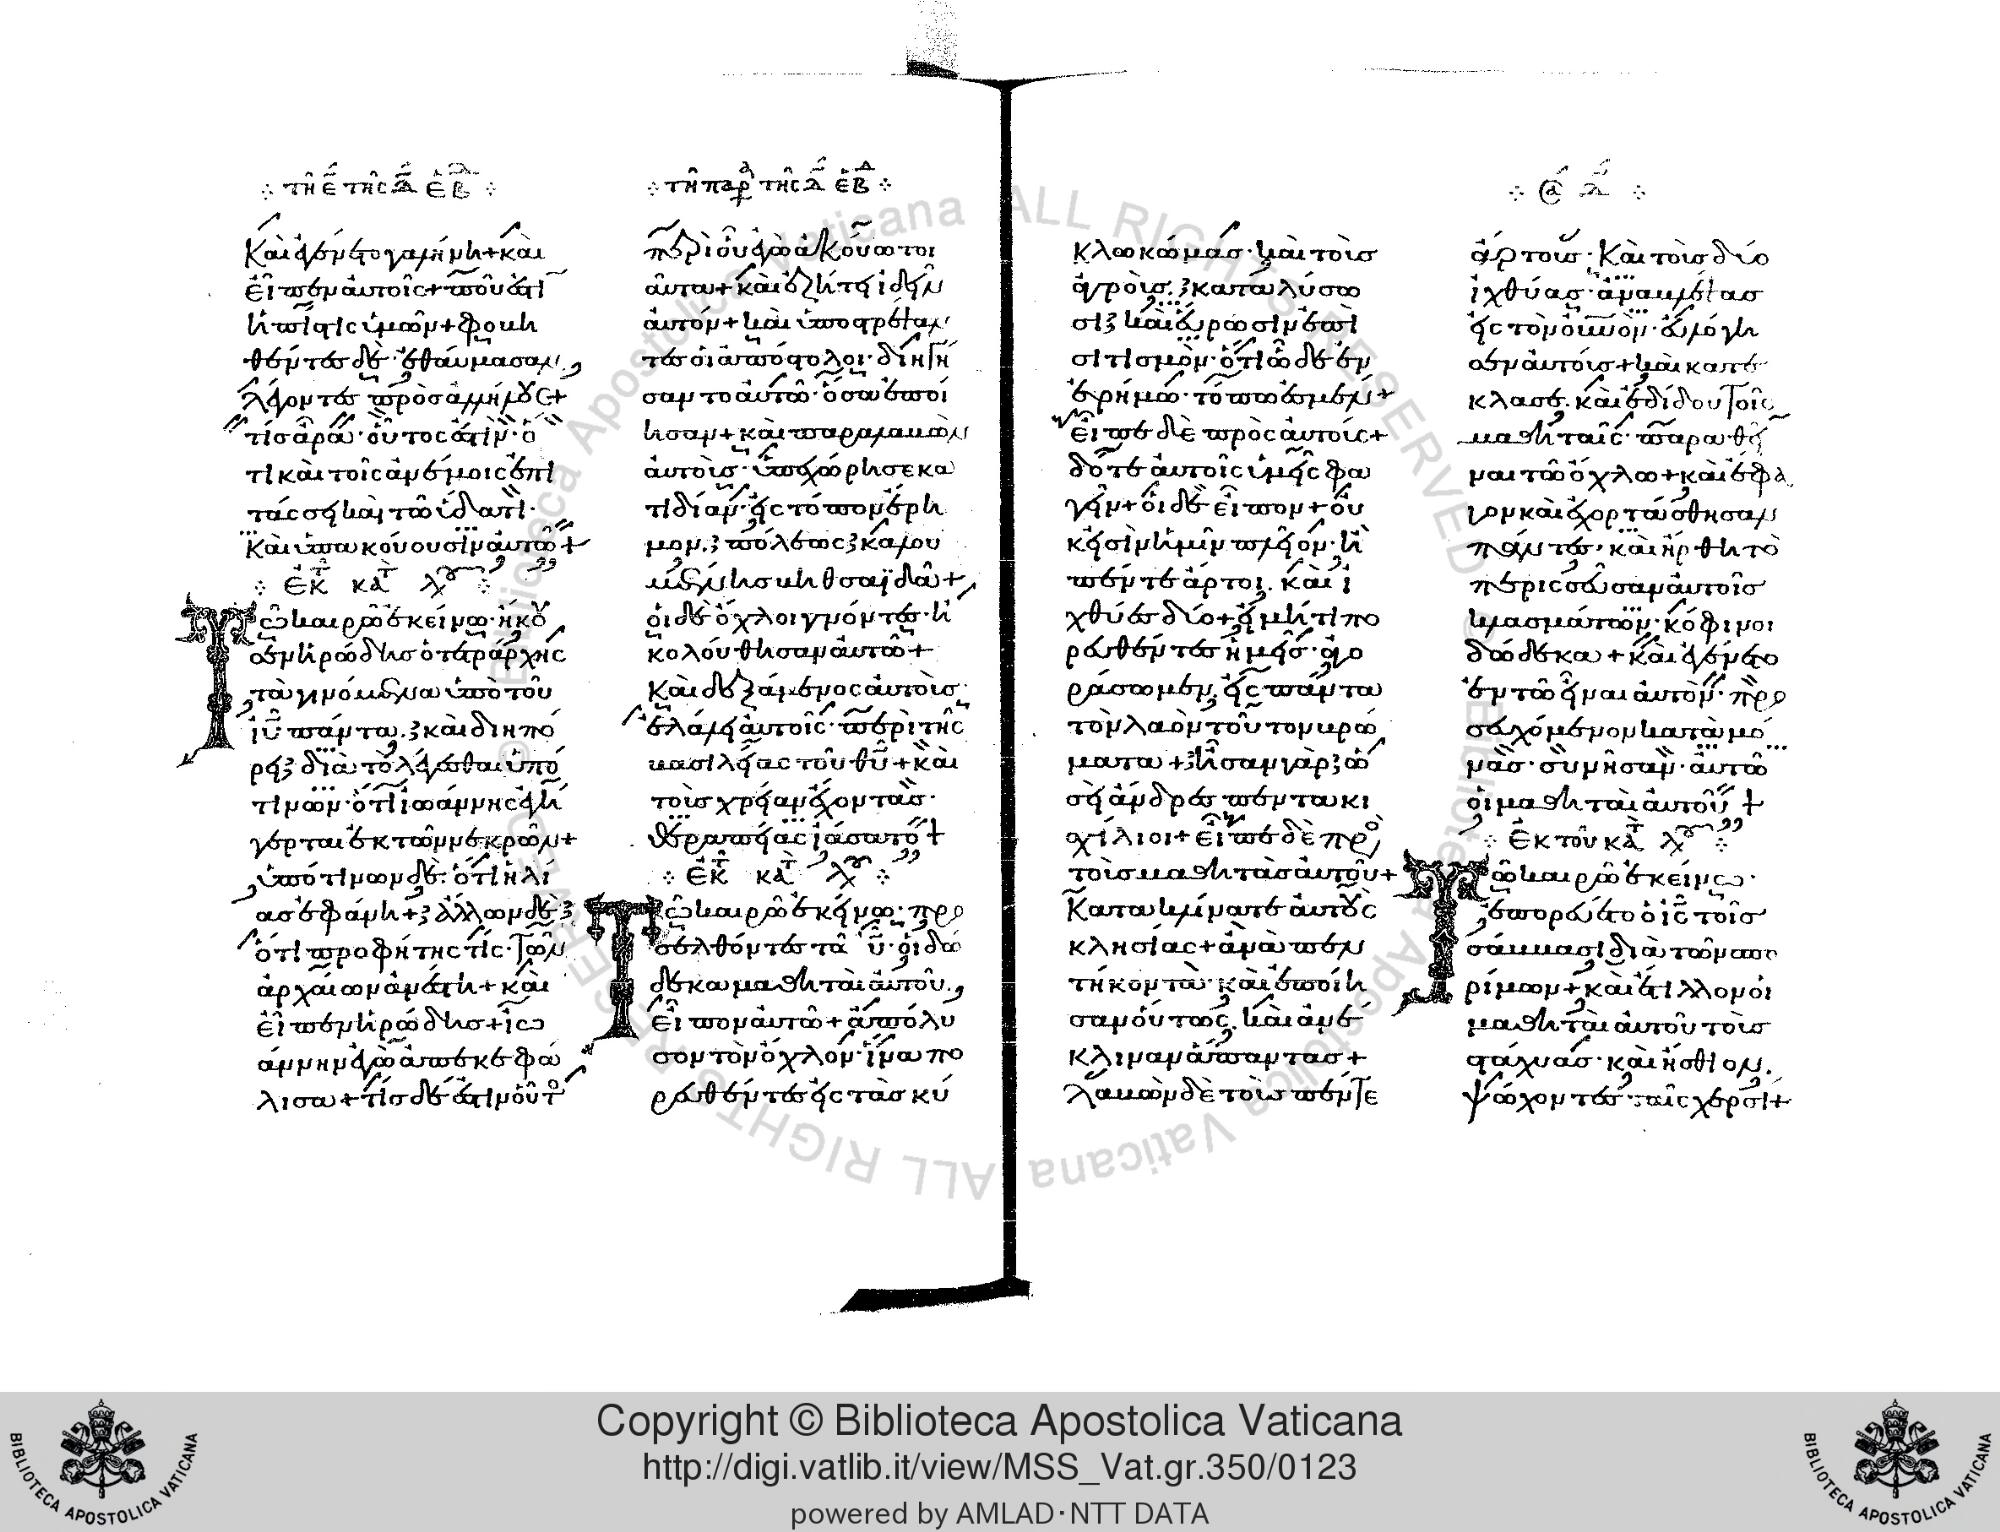 τῆ ε τῆς δ ἑβ
Καὶ ἐγένετο γαλήνη + καὶ
εἶπεν αὐτοῖς + ποῦ ἐστὶ
ἡ πίστις ὑμῶν + φοβη
θέντες δὲ ἐθαύμασαν,
λέγοντες πρὸς ἀλλήλους +
τίς ἄρα οὗτος ἐστὶν ὅ
τι καὶ τοῖς ἀνέμοις ἐπι
τάσσει καὶ τῶ ὕδατι·
Καὶ ὑπακούουσιν αὐτῶ +
ἐκ κατ λου
Τῶ καιρῶ ἐκείνω ἤκου
σεν ἡρώδης ὁ τετράρχης
τὰ γινόμενα ὑπὸ τοῦ
ἰῦ πάντα. καὶ διηπό
ρει διὰ τὸ λέγεσθαι ὑπό
τινων· ὅτι ἰωάννης ἐγή
γερται ἐκ τῶν νεκρῶν +
ὑπό τινων δὲ· ὅτι ἡλί
ας ἐφάνη + ἄλλων δὲ
ὅτι προφήτης τίς· τῶν
ἀρχαίων ἀνέστη + καὶ
εἶπεν ἡρώδης + ἰω
άννην ἐγὼ ἀπεκεφά
λισα + τίς δέ ἐστιν οὗτος
τῆ παρ τῆς δ ἑβδ
περὶ οὗ ἐγὼ ἀκούω τοι
αῦτα + καὶ ἐζήτει ἰδεῖν
αὐτόν + καὶ ὑποστρέψαν
τες οἱ ἀπόστολοι· διηγή
σαντο αὐτῶ· ὅσα ἐποί
ησαν + καὶ παραλαβὼν
αὐτοὺς· ὑπεχώρησε κα
τιδίαν· εἰς τόπον ἔρη
μον. πόλεως καλου
μένης βηθσαϊδὰ +
οἱ δὲ ὄχλοι γνόντες· ἠ
κολούθησαν αὐτῶ +
Καὶ δεξάμενος αὐτοὺς·
ἐλάλει αὐτοῖς· περὶ τῆς
βασιλείας τοῦ θῦ + καὶ
τοὺς χρείαν ἔχοντας·
θεραπείας ἰάσατο +
ἐκ κατ λου
Τῶ καιρῶ ἐκείνω· προ
σελθόντες τῶ ἰῦ· οἱ δώ
δεκα μαθηταὶ αὐτοῦ.
Εἶπον αὐτῶ + ἀπόλυ
σον τὸν ὄχλον· ἵνα πο
ρευθέντες εἰς τὰς κύ
κλω κώμας· καὶ τοὺς
ἀγροὺς. καταλύσω
σι καὶ εὕρωσιν ἐπι
σιτισμὸν· ὅτι ὧδε ἐν
ἐρήμω· τόπω ἐσμέν +
εἶπε δὲ πρὸς αὐτούς +
δότε αὐτοῖς ὑμεῖς φα
γεῖν + οἱ δὲ εἶπον + οὐ
κ εἰσὶν ἡμῖν πλεῖον· ἢ
πέντε ἄρτοι. καὶ ἰ
χθύες δύο + εἰ μή τι πο
ρευθέντες ἡμεῖς· ἀγο
ράσωμεν. εἰς πάντα
τὸν λαὸν τοῦτον βρώ
ματα + ἦσαν γὰρ ὡ
σεὶ ἄνδρες πεντακι
σχίλιοι + εἶπε δὲ πρὸς
τοὺς μαθητὰς αὐτοῦ +
Κατακλίνατε αὐτοὺς
κλησίας + ἀνὰ πεν
τήκοντα· καὶ ἐποίη
σαν οὕτως. καὶ ἀνέ
κλιναν ἅπαντας +
λαβὼν δὲ τοὺς πέντε
σα δ
ἄρτους· Καὶ τοὺς δύο
ἰχθύας· ἀναβλέψας
εἰς τὸν οὐνὸν· εὐλόγη
σεν αὐτοὺς + καὶ κατέ
κλασε. καὶ ἐδίδου τοῖς
μαθηταῖς· παραθεῖ
ναι τῶ ὄχλω + καὶ ἔφα
γον καὶ ἐχορτάσθησαν
πάντες· καὶ ἤρθη τὸ
περισσεῦσαν αὐτοῖς
κλασμάτων· κόφινοι
δώδεκα + καὶ ἐγένετο
ἐν τῶ εἶναι αὐτὸν· προ
σευχόμενον καταμό
νας· συνῆσαν· αὐτῶ
οἱ μαθηταὶ αὐτοῦ +
ἐκ τοῦ κατ λου
Τῶ καιρῶ ἐκείνω·
ἐπορεύετο ὁ ἰς τοῖς
σάββασι διὰ τῶν σπο
ρίμων + καὶ ἔτιλλον οἱ
μαθηταὶ αὐτοῦ τοὺς
στάχυας· καὶ ἤσθιον.
ψώχοντες· ταῖς χερσί +
Copyright © Biblioteca Apostolica Vaticana
http://digi.vatlib.it/view/MSS_Vat.gr.350/0123
powered by AMLAD·NTT DATA
BIBLIOTECA APOSTOLICA VATICANA
BIBLIOTECA APOSTOLICA VATICANA
© Biblioteca Apostolica Vaticana ALL RIGHTS RESERVED
© Biblioteca Apostolica Vaticana ALL RIGHTS RESERVED